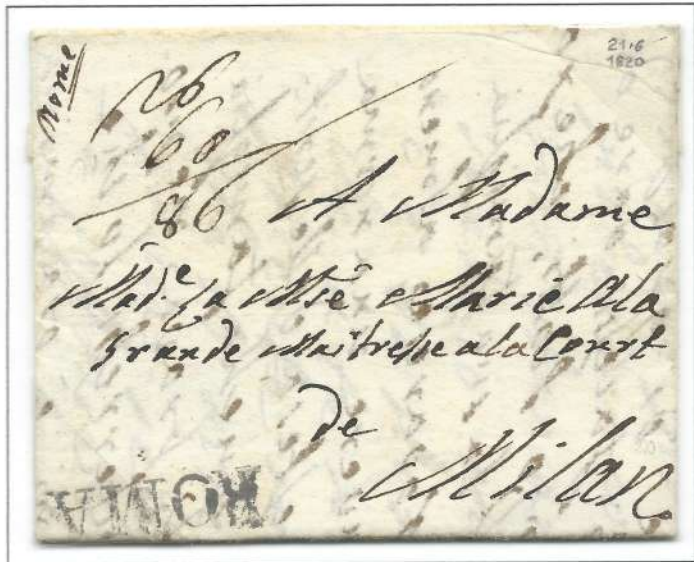 Rome
21.6
1820
26
60
86
A Madame
Mad.e La Mse Marie Ala
Grande Maitresse a la Court
de
Milan
ROMA